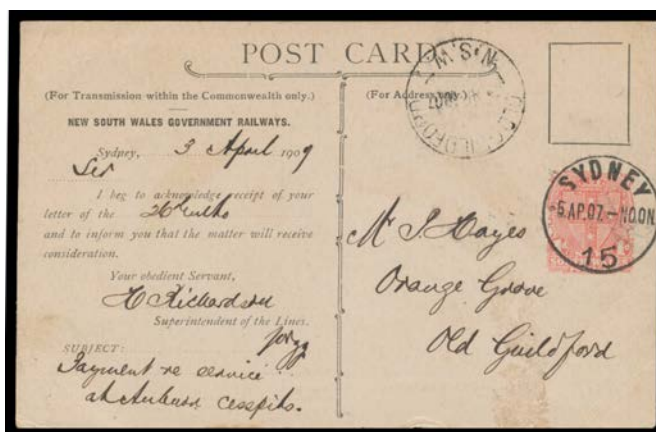 POST CARD
(For Transmission within the Commonwealth only.)
NEW SOUTH WALES GOVERNMENT RAILWAYS.
Sydney, 3 April 1909
Sir
I beg to acknowledge receipt of your
letter of the 26th ulto
and to inform you that the matter will receive
consideration.
Your obedient Servant,
H Richardson
Superintendent of the Lines.
SUBJECT:
Payment re service
at Auburn cesspits.
(For Address only.)
N.S.W.
OLD GUILDFORD
SYDNEY
5 AP.07.-NOON
15
Mr J. Hayes
Orange Grove
Old Guildford